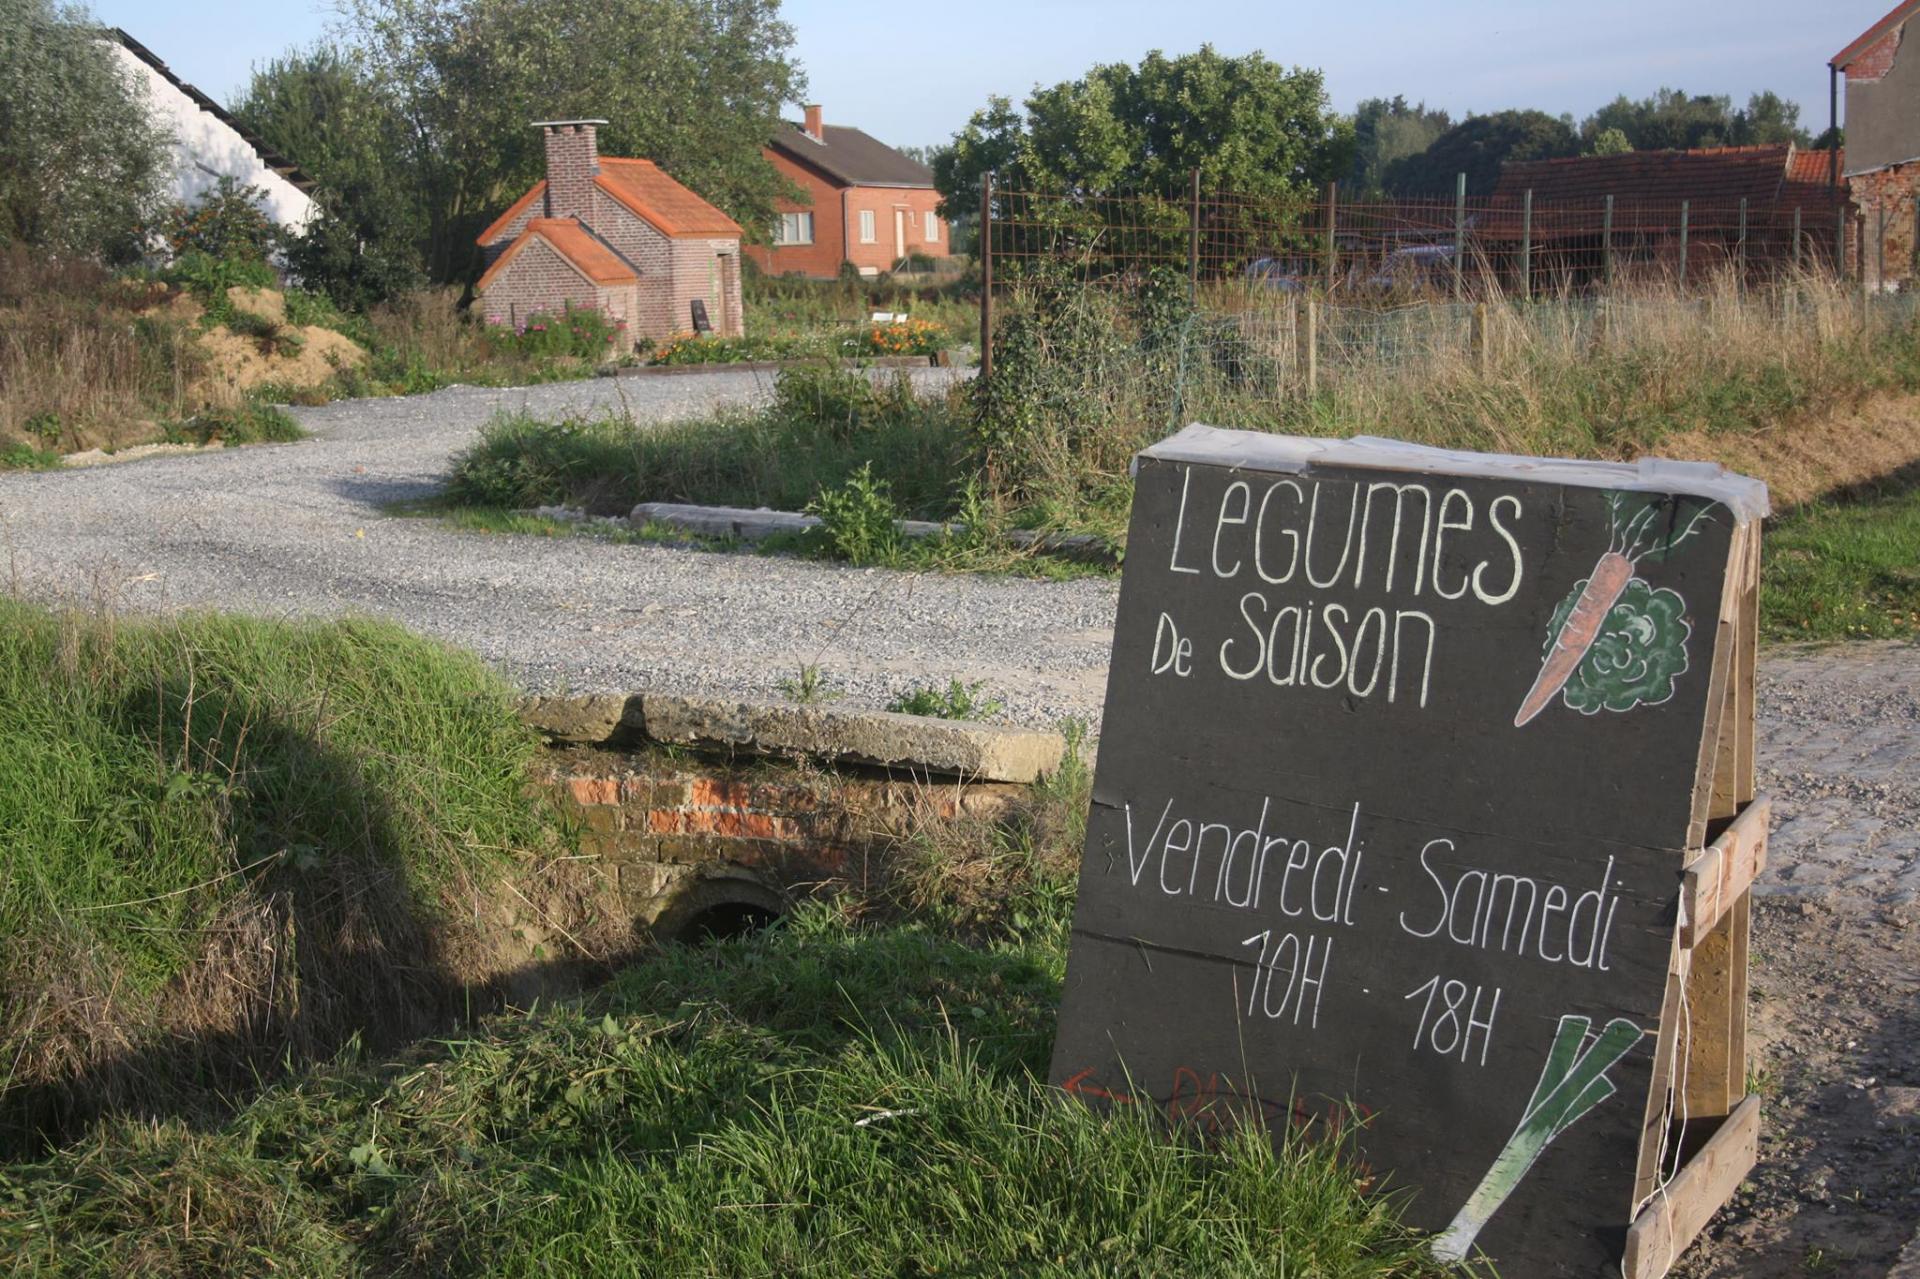 LéGUmes
De Saison
Vendredi - Samedi
10H - 18H